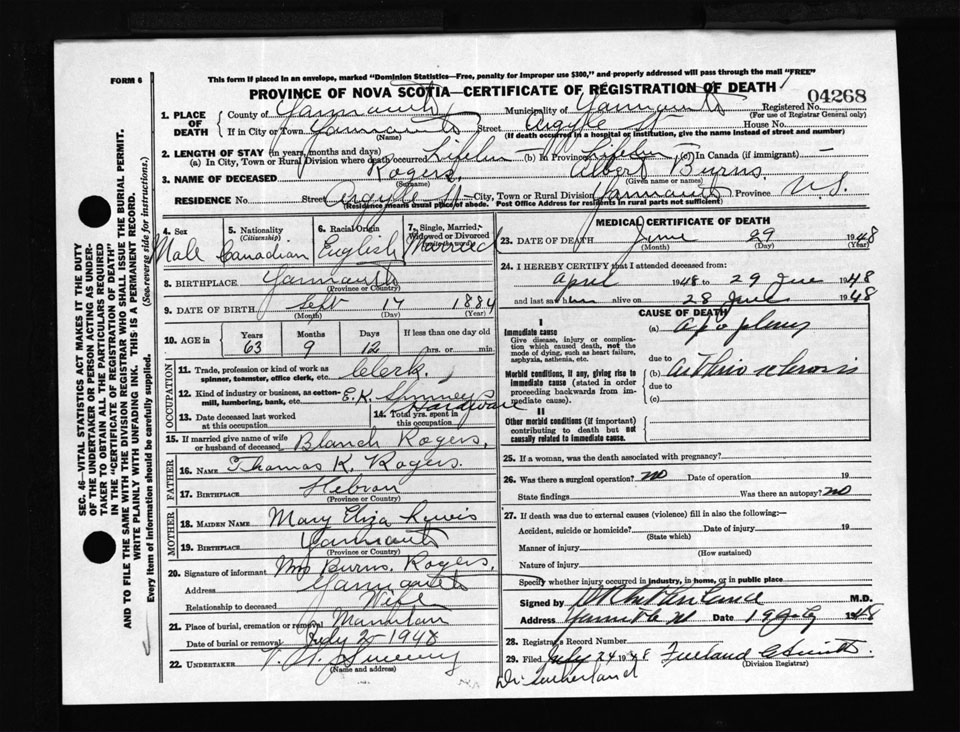 FORM 6
This form if placed in an envelope, marked "Dominion Statistics—Free, penalty for improper use $300," and properly addressed will pass through the mail "FREE"
PROVINCE OF NOVA SCOTIA—CERTIFICATE OF REGISTRATION OF DEATH
04268
1. PLACE OF DEATH County of Yarmouth Municipality of Yarmouth Registered No.
(For use of Registrar General only)
If in City or Town Yarmouth Street Argyle St House No.
(Name) (If death occurred in a hospital or institution, give the name instead of street and number)
2. LENGTH OF STAY (in years, months and days)
(a) In City, Town or Rural Division where death occurred Lifetime (b) In Province Lifetime (c) In Canada (if immigrant) —
3. NAME OF DECEASED Rogers, Albert Burns.
(Surname) (Given name or names)
RESIDENCE No. Street Argyle St City, Town or Rural Division Yarmouth Province N.S.
(Residence means usual place of abode. Post Office Address for residents in rural parts not sufficient)
4. Sex 5. Nationality (Citizenship) 6. Racial Origin 7. Single, Married, Widowed or Divorced
Male Canadian English Married
8. BIRTHPLACE Yarmouth
(Province or Country)
9. DATE OF BIRTH Sept 17 1884
(Month) (Day) (Year)
10. AGE in Years Months Days If less than one day old
63 9 12 hrs. or min.
OCCUPATION
11. Trade, profession or kind of work as spinner, teamster, office clerk, etc. Clerk.
12. Kind of industry or business, as cotton-mill, lumbering, bank, etc. E.K. Spinney Hardware
13. Date deceased last worked at this occupation
14. Total yrs. spent in this occupation
15. If married give name of wife or husband of deceased Blanch Rogers,
FATHER
16. NAME Thomas K. Rogers.
17. BIRTHPLACE Hebron
(Province or Country)
MOTHER
18. MAIDEN NAME Mary Eliza Lewis
19. BIRTHPLACE Yarmouth
(Province or Country)
20. Signature of informant Mrs Burns Rogers,
Address Yarmouth
Relationship to deceased Wife
21. Place of burial, cremation or removal Mountain
Date of burial or removal July 2 1948
22. UNDERTAKER V. S. Sweeny
(Name and address)
MEDICAL CERTIFICATE OF DEATH
23. DATE OF DEATH June 29 1948
(Month) (Day) (Year)
24. I HEREBY CERTIFY that I attended deceased from:
April 1948 to 29 June 1948
and last saw him alive on 28 June 1948
CAUSE OF DEATH
I
Immediate cause
Give disease, injury or complication which caused death, not the mode of dying, such as heart failure, asphyxia, asthenia, etc.
(a) apoplexy
due to
Morbid conditions, if any, giving rise to immediate cause (stated in order proceeding backwards from immediate cause).
(b) arthrio sclerosis
due to
(c)
II
Other morbid conditions (if important) contributing to death but not causally related to immediate cause.
25. If a woman, was the death associated with pregnancy?
26. Was there a surgical operation? no Date of operation 19
State findings Was there an autopsy? no
27. If death was due to external causes (violence) fill in also the following:—
Accident, suicide or homicide? Date of injury 19
(State which)
Manner of injury
(How sustained)
Nature of injury
Specify whether injury occurred in industry, in home, or in public place
Signed by M.D.
Address Yarmouth Date 19 July 1948
28. Registrar's Record Number
29. Filed July 24 1948
(Division Registrar)
Dr. Sutherland
SEC. 46—VITAL STATISTICS ACT MAKES IT THE DUTY
OF THE UNDERTAKER OR PERSON ACTING AS UNDER-
TAKER TO OBTAIN ALL THE PARTICULARS REQUIRED
IN THE "CERTIFICATE OF REGISTRATION OF DEATH"
AND TO FILE THE SAME WITH THE DIVISION REGISTRAR WHO SHALL ISSUE THE BURIAL PERMIT.
WRITE PLAINLY WITH UNFADING INK. THIS IS A PERMANENT RECORD.
Every item of information should be carefully supplied. (See reverse side for instructions.)